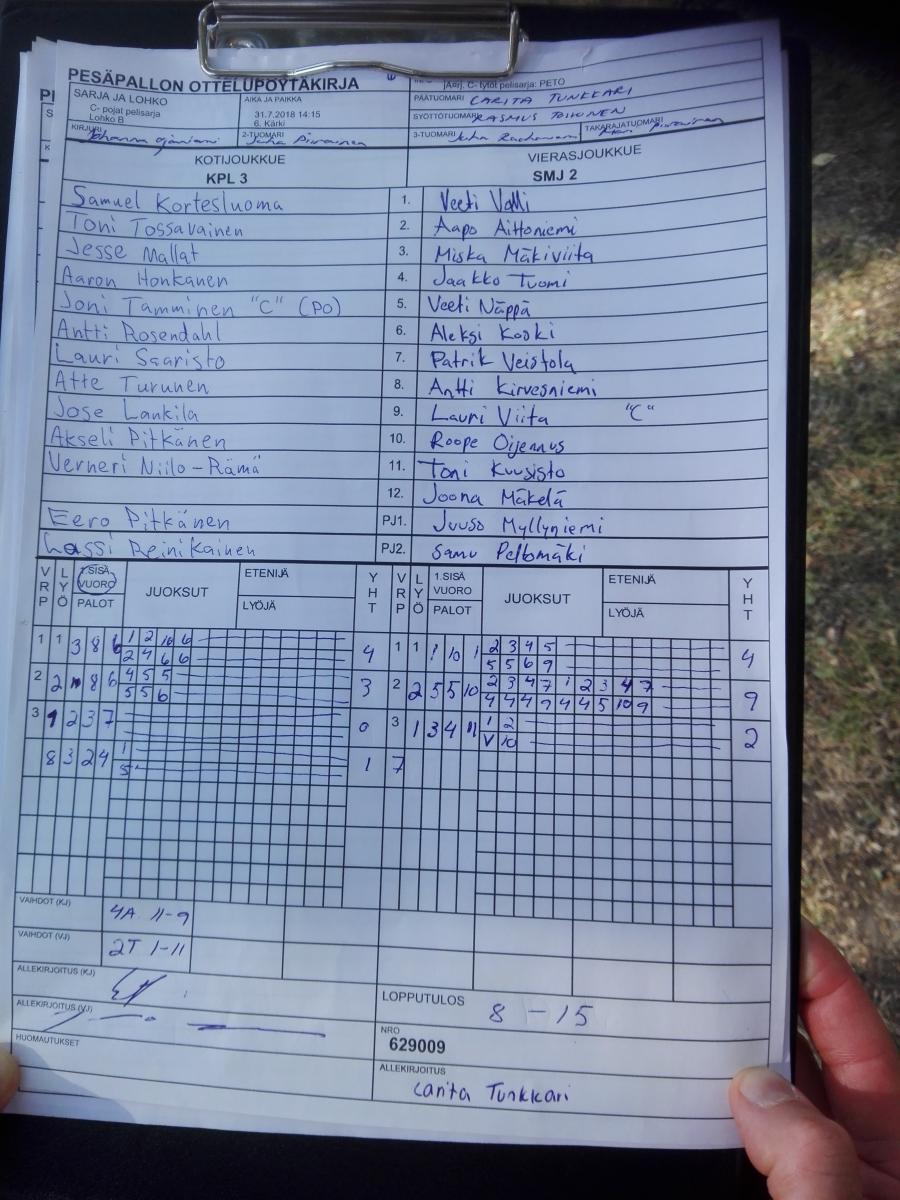 PESÄPALLON OTTELUPÖYTÄKIRJA
SARJA JA LOHKO
C- pojat pelisarja
Lohko B
AIKA JA PAIKKA
31.7.2018 14:15
6. Kärki
C- tytöt pelisarja: PETO
PÄÄTUOMARI CARITA TUNKKARI
SYÖTTÖTUOMARI RASMUS
KIRJURI Johanna
2-TUOMARI Juha
3-TUOMARI Juha
TAKARAJATUOMARI
KOTIJOUKKUE
KPL 3
VIERASJOUKKUE
SMJ 2
Samuel Kortesluoma 1. Veeti Valli
Toni Tossavainen 2. Aapo Aittoniemi
Jesse Mallat 3. Miska Mäkiviita
Aaron Honkanen 4. Jaakko Tuomi
Joni Tamminen "C" (PO) 5. Veeti Näppä
Antti Rosendahl 6. Aleksi Koski
Lauri Saaristo 7. Patrik Veistola
Atte Turunen 8. Antti Kirvesniemi
Jose Lankila 9. Lauri Viita "C"
Akseli Pitkänen 10. Roope Oijennus
Verneri Niilo-Rämä 11. Toni Kuusisto
12. Joona Mäkelä
Eero Pitkänen PJ1. Juuso Myllyniemi
Lassi Reinikainen PJ2. Samu Peltomäki
VRP LYÖ 1.SISÄ VUORO PALOT JUOKSUT ETENIJÄ LYÖJÄ YHT VRP LYÖ 1.SISÄ VUORO PALOT JUOKSUT ETENIJÄ LYÖJÄ YHT
1 1 3 8 6 1 2 10 6 4 1 1 1 10 1 2 3 4 5 4
2 4 6 6 5 5 6 9
2 2 8 6 4 5 5 3 2 2 5 5 10 2 3 4 7 1 2 3 4 7 9
5 5 6 4 4 4 9 4 4 5 10 9
3 1 2 3 7 0 3 1 3 4 11 1 2 2
V 10
8 3 2 4 1 1 7
5
VAIHDOT (KJ) 4A 11-9
VAIHDOT (VJ) 2T 1-11
ALLEKIRJOITUS (KJ)
ALLEKIRJOITUS (VJ)
HUOMAUTUKSET
LOPPUTULOS 8 - 15
NRO
629009
ALLEKIRJOITUS
Carita Tunkkari